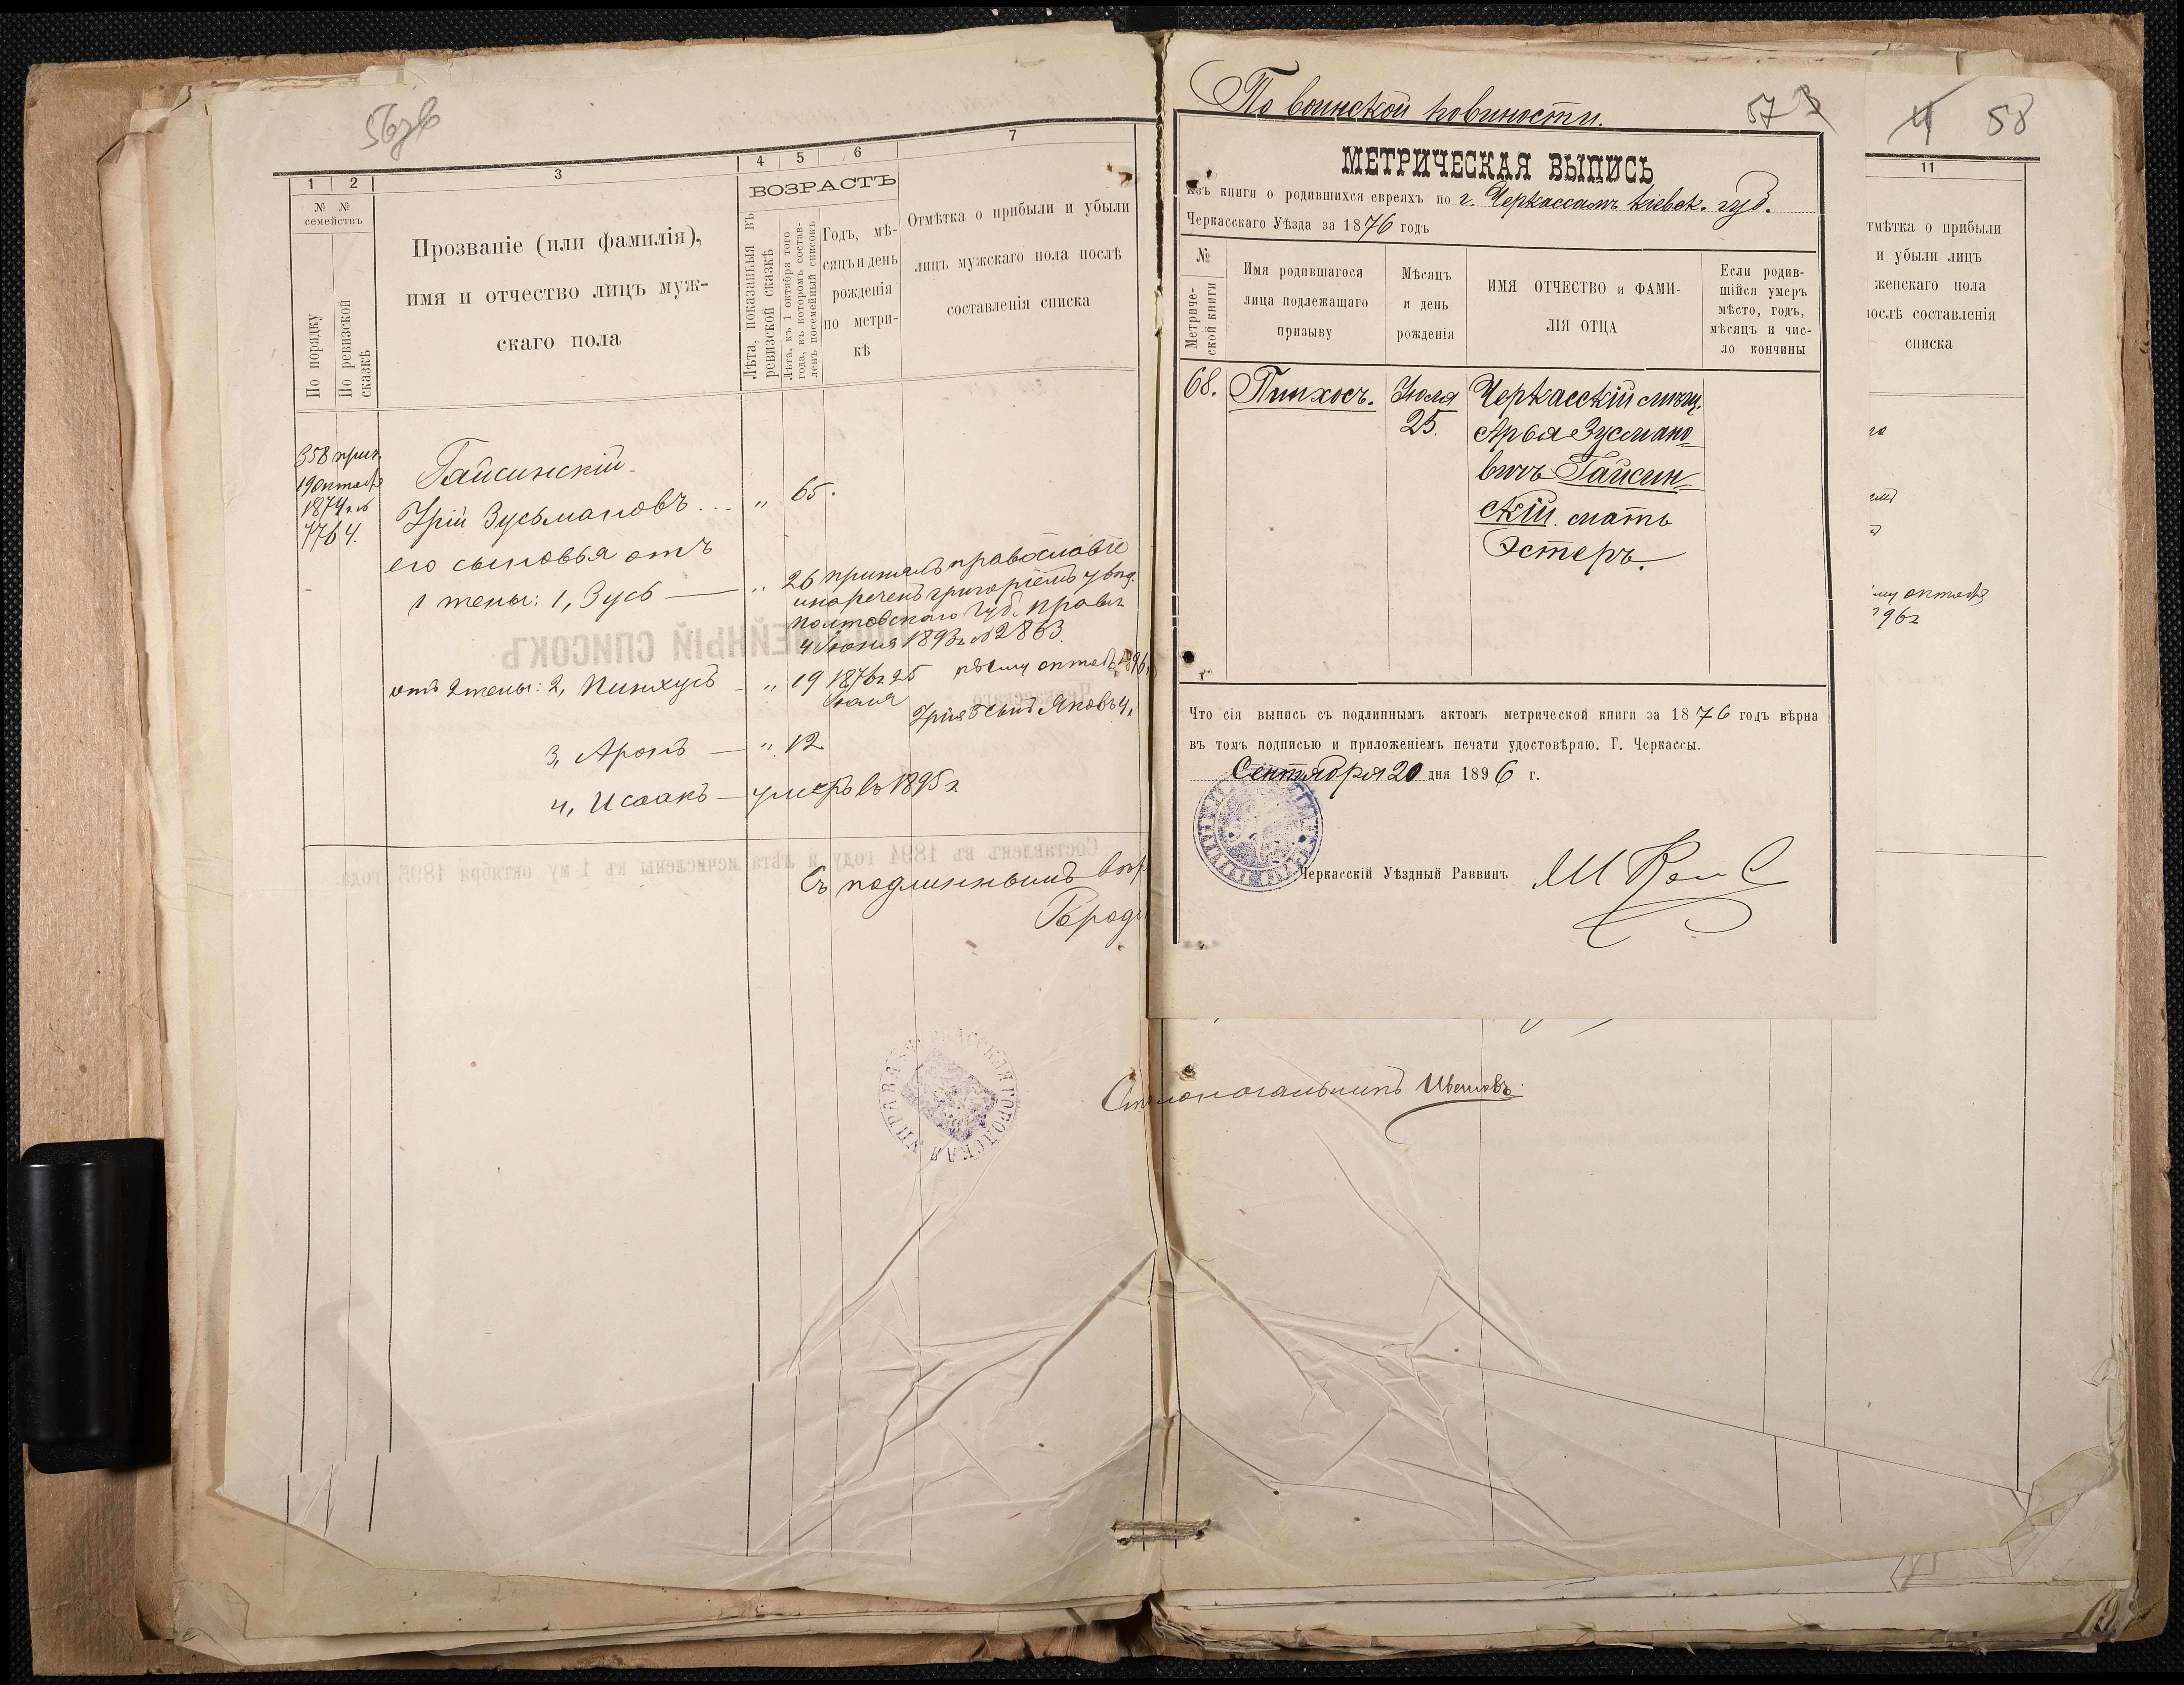 56об
1
2
3
4
5
6
7
№ №
семействъ
По порядку
По ревизской
сказкѣ
Прозваніе (или фамилія),
имя и отчество лицъ муж-
скаго пола
ВОЗРАСТЪ
Лѣта, показанныя въ
ревизской сказкѣ
Лѣта, къ 1 октября того
года, въ которомъ состав-
ленъ посемейный списокъ
Годъ, мѣ-
сяцъ и день
рожденія
по метри-
кѣ
Отмѣтка о прибыли и убыли
лицъ мужскаго пола послѣ
составленія списка
358 прип.
19 октября
1874 г. №
4764.
Гайсинскій
Урій Зусьмановъ . . . " 65.
его сыновья отъ
1 жены: 1, Зусь — " 26 принялъ православіе
и нареченъ григоріемъ
Полтовскаго Губ. Правл.
4 Іюня 1893 г. № 2863.
отъ 2 жены: 2, Пинхусъ - " 19 1876 г. 25
Іюля
Урія сынъ Яковъ 4,
3, Аронъ — " 12
4, Исаакъ — умеръ въ 1895 г.
ПОСЕМЕЙНЫЙ СПИСОКЪ
Черкасскаго
Составленъ въ 1894 году и лѣта исчислены къ 1 му октября 1895 года.
Съ подлиннымъ вѣр
Город
ГОРОДСКАЯ УПРАВА
По воинской повиности.
57
МЕТРИЧЕСКАЯ ВЫПИСЬ
Изъ книги о родившихся евреяхъ по г. Черкассамъ Кіевск. губ.
Черкасскаго Уѣзда за 1876 годъ
№
Метриче-
ской книги
Имя родившагося
лица подлежащаго
призыву
Мѣсяцъ
и день
рожденія
ИМЯ ОТЧЕСТВО и ФАМИ-
ЛІЯ ОТЦА
Если родив-
шійся умеръ
мѣсто, годъ,
мѣсяцъ и чис-
ло кончины
68. Пинхосъ. Іюля
25.
Черкасскій мѣщ.
Арья Зусмано-
вичъ Гайсин-
скій. мать
Эстеръ.
Что сія выпись съ подлиннымъ актомъ метрической книги за 1876 годъ вѣрна
въ томъ подписью и приложеніемъ печати удостовѣряю. Г. Черкассы.
Сентября 20 дня 1896 г.
Черкасскій Уѣздный Раввинъ
4 58
11
тмѣтка о прибыли
и убыли лицъ
женскаго пола
послѣ составленія
списка
му октября
96 г